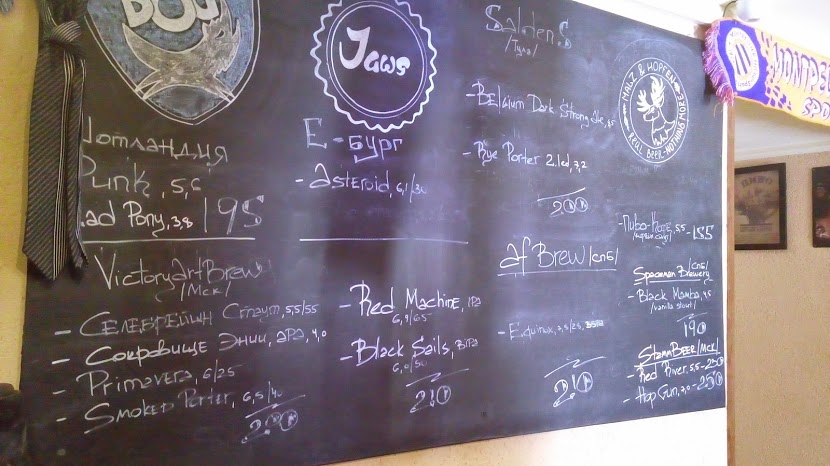 Punk, 5,6
Pony, 3,8 195
VictoryArtBrew
/Мск/
- Селебрейшн Стаут, 5,5/55
- Сокровище Энии, APA, 4,0
- Primavera, 6/25
- Smoked Porter, 6,5/40
Jaws
Е-бург
- Asteroid, 6,1/30
- Red Machine, IPA
- Black Sails, BIPA
6,0/50
210
Salden.S
/Тула/
- Belgium Dark Strong Ale, 8,5
- Rye Porter 2.1ed, 7,2
200
AF Brew /СПб/
210
MALZ & HOPFEN
REAL BEER - NOTHING MORE
155
/СПб/
Spaceman Brewery
- Black Mamba, 4,5
/vanilla stout/
190
StammBeer /Мск/
- Red River, 5,5 - 250
- Hop Gun, 7,0 - 250